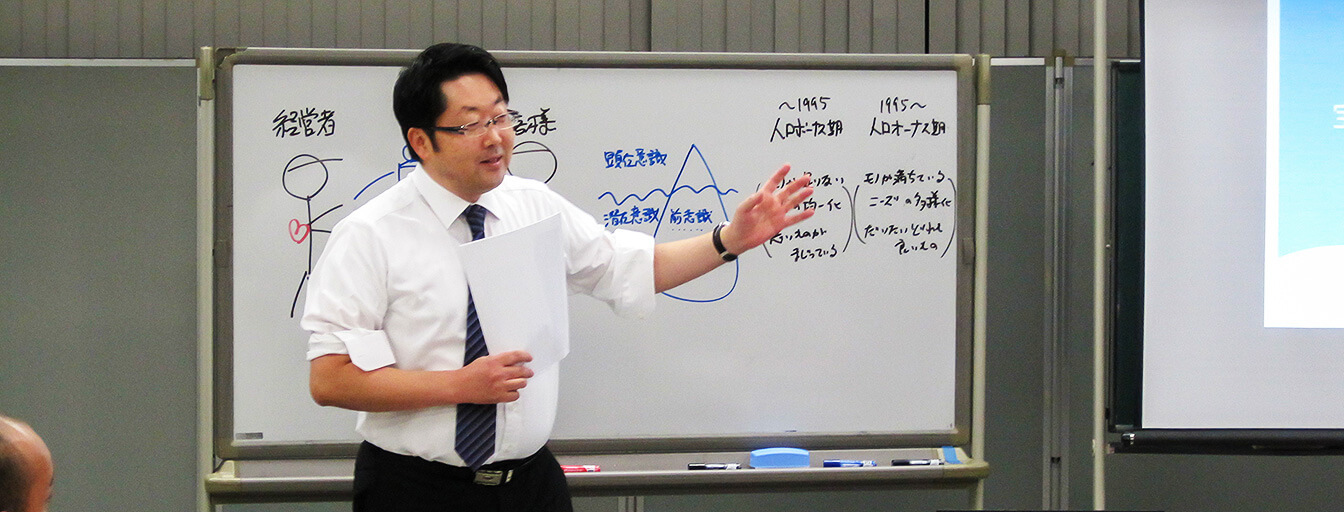 経営者
客様
顕在意識
潜在意識
前意識
～1995
人口ボーナス期
りない
均一化
まじっている
1995～
人口オーナス期
モノが満ちている
ニーズの多様化
だいたいどれも
良いもの